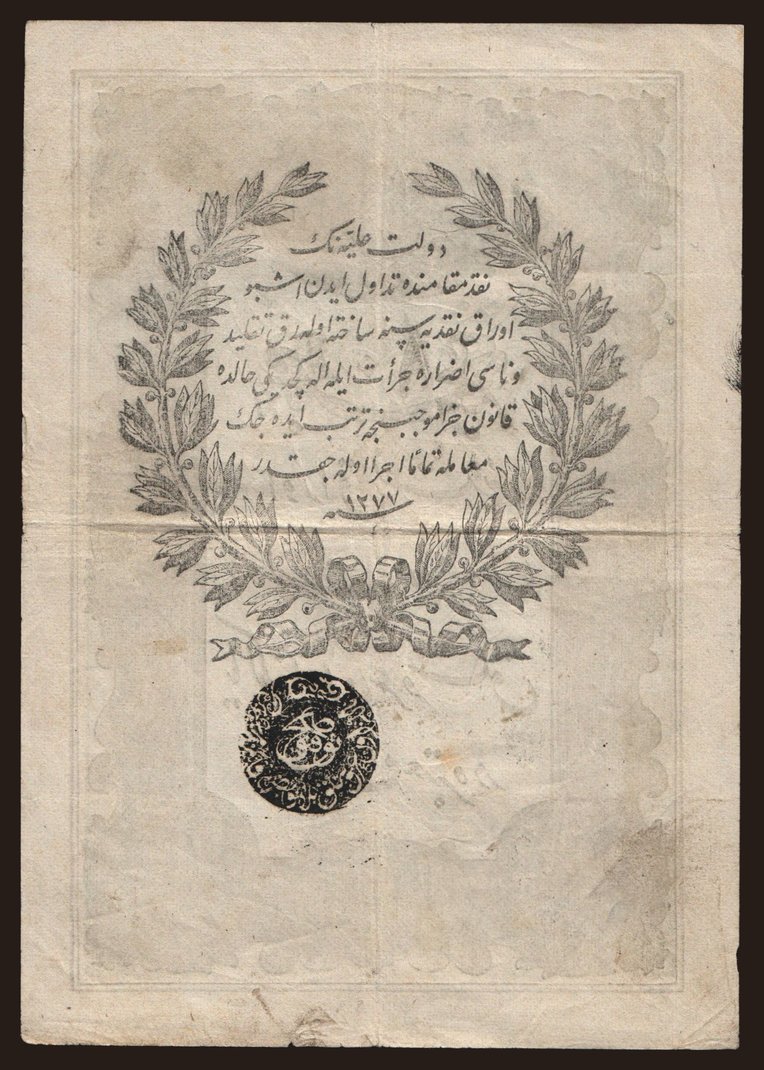 دولت علیه‌نك
نقد مقامنده تداول ایدن اشبو
اوراق نقدیه سنه ساخته اوله‌رق تقلید
و ناسی اضراره جرأت ایله
قانون جزا موجبنجه ترتب ایده جك
معامله تماما اجرا اوله جقدر
سنه ١٢٧٧